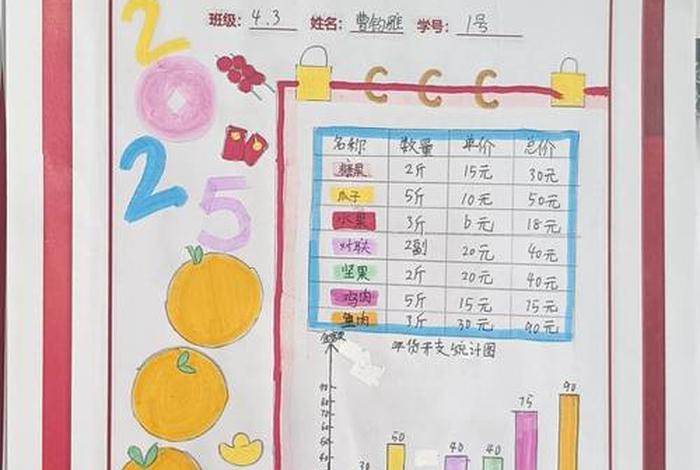 班级: 4.3 姓名: 曹钧雁 学号: 1号
2
2
5
名称 数量 单价 总价
糖果 2斤 15元 30元
瓜子 5斤 10元 50元
水果 3斤 6元 18元
对联 2副 20元 40元
坚果 2斤 20元 40元
鸡肉 5斤 15元 75元
鱼肉 3斤 30元 90元
年货开支统计图
90
75
50
40 40
30